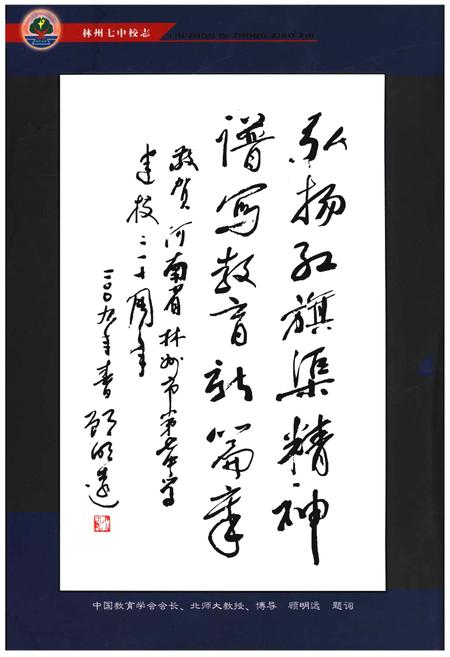 林州七中校志
LIN ZHOU QI ZHONG XIAO ZHI
弘扬红旗渠精神
谱写教育新篇章
敬贺河南省林州市第七中学
建校二十周年
二00九年春 顾明远
中国教育学会会长、北师大教授、博导 顾明远 题词